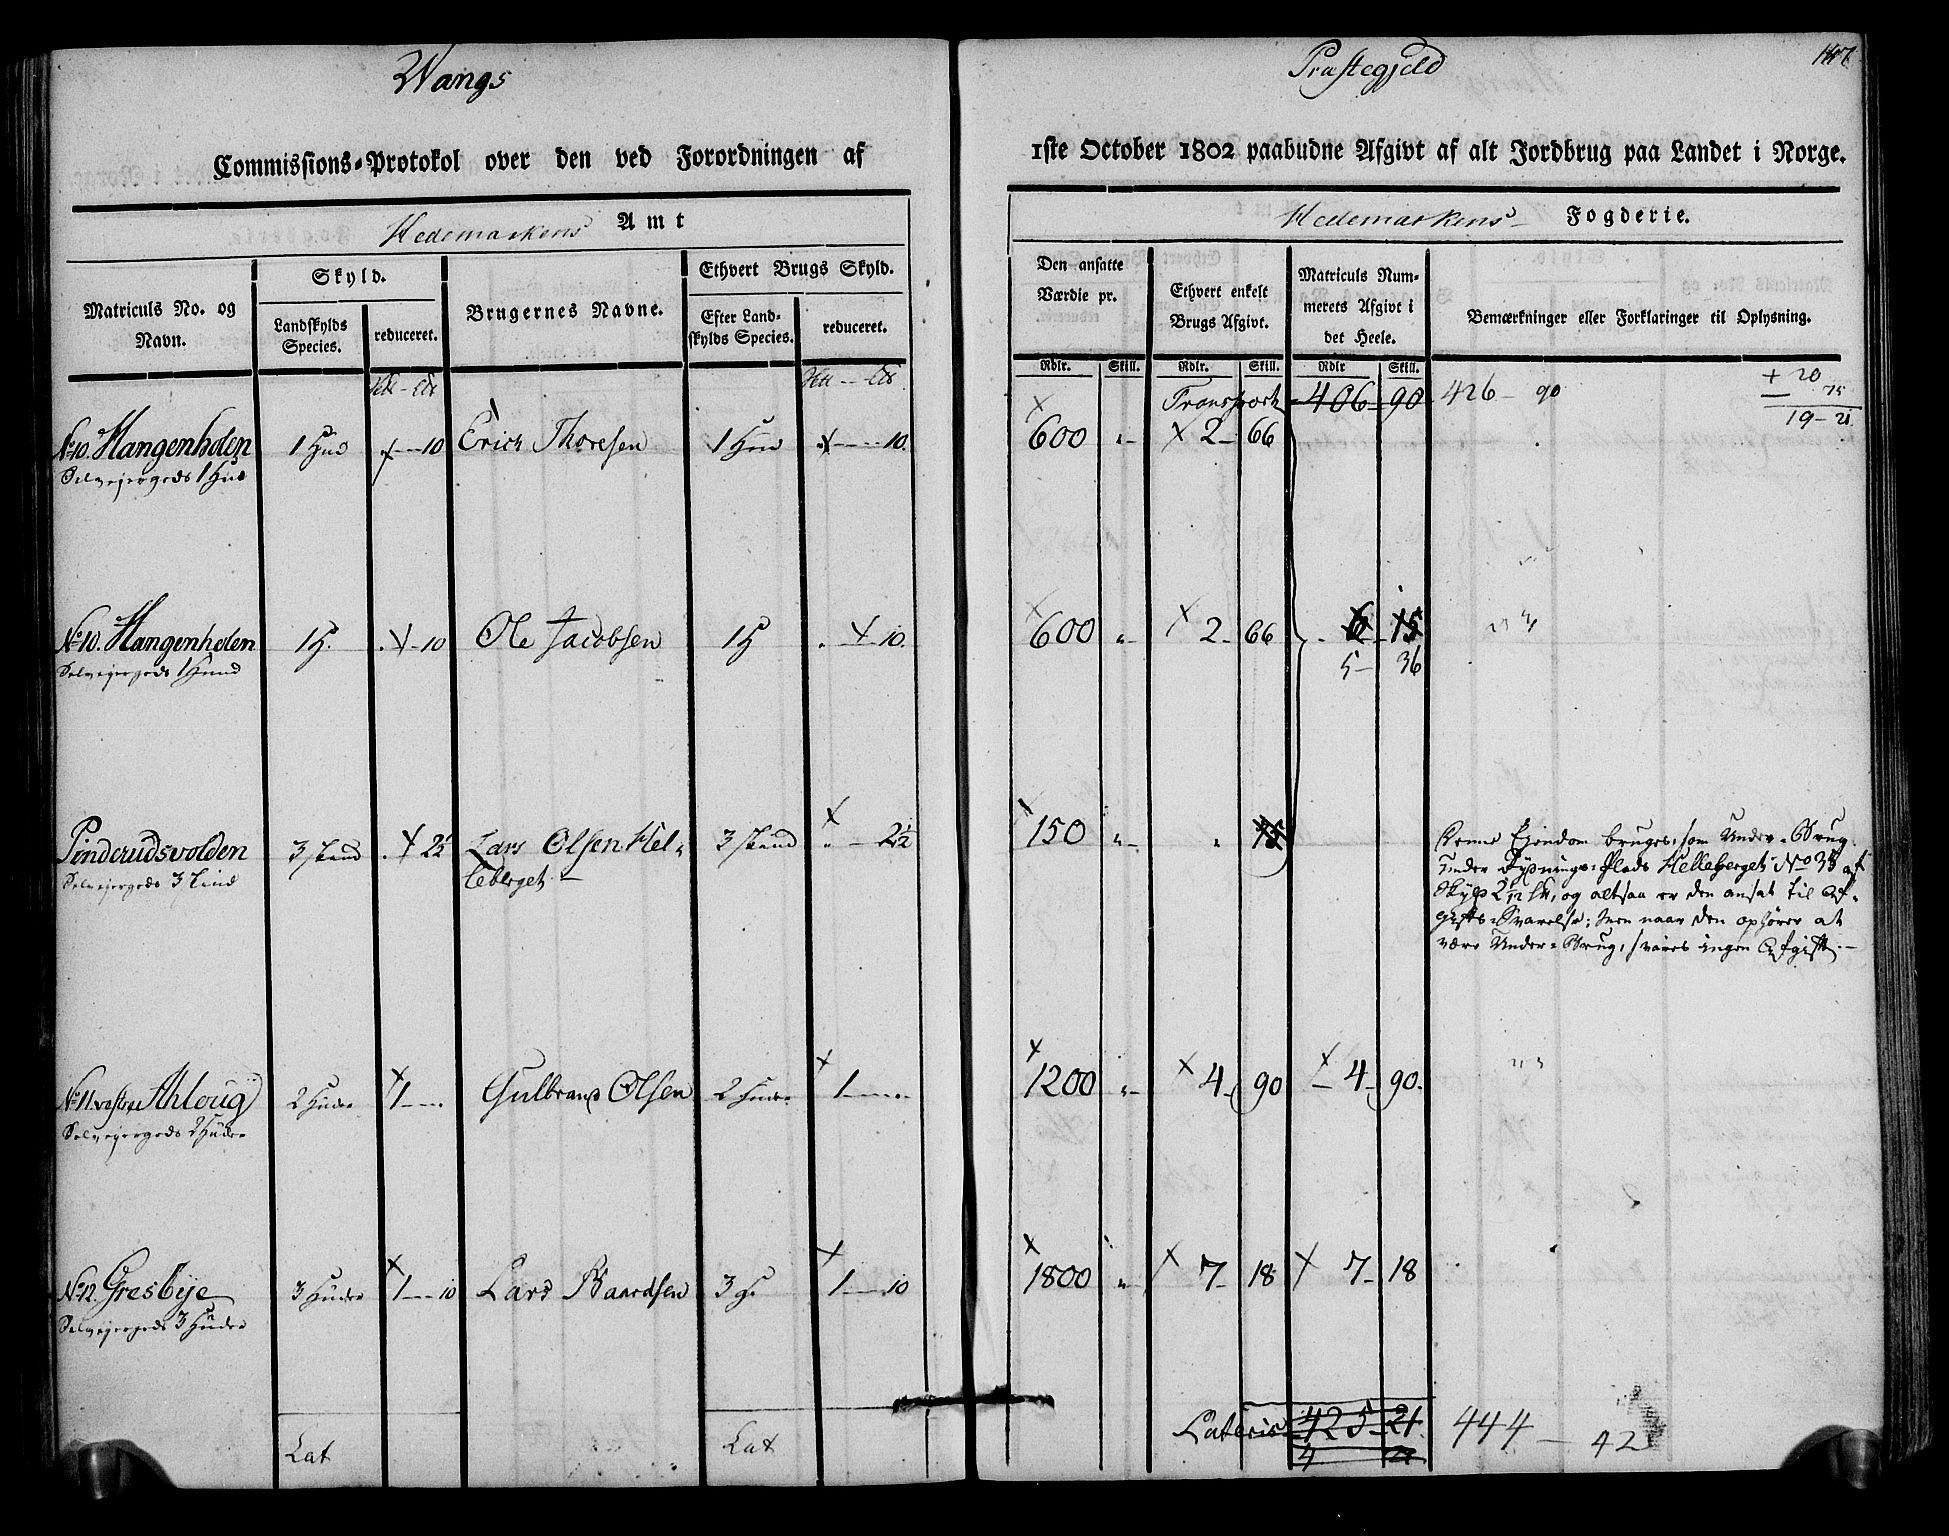 Wangs
Præstegjeld
Commissions-Protokol over den ved Forordningen af
1ste October 1802 paabudne Afgivt af alt Jordbrug paa Landet i Norge.
Hedemarkens Amt
Hedemarkens Fogderie.
Matriculs No. og Navn.
Skyld.
Landskylds Species.
reduceret.
Brugernes Navne.
Ethvert Brugs Skyld.
Efter Landskylds Species.
reduceret.
Den ansatte Værdie pr.
Ethvert enkelt Brugs Afgivt.
Matriculs Nummerets Afgivt i det Heele.
Bemærkninger eller Forklaringer til Oplysning.
Rdlr. Skill. Rdlr. Skill. Rdlr Skill.
Transport 406 90 426 - 90
+ 20
75
19 - 21
No 10. Hangenholen 1 Hud 10 Erich Thoresen 1 Hud 10. 600 2 - 66
Selvejergods 1 Hud
No 10. Hangenholen 1 H. 10 Ole Jacobsen 1 H 10. 600 2 - 66 6 15
Selvejergods 1 Hud
5 - 36
Pinderudsvolden 3 skind 2½ Lars Olsen Hel- 3 skind 2½ 150 15
Selvejergods 3 skind
leberget
Denne Ejendom bruges som Under-Brug
under Rydnings-Plads Helleberget No 35 af
Skyld, og altsaa er den ansat til Af-
gifts-Svarelse; Men naar den ophører at
være Under-Brug, svares ingen Afgift.
No 11. vestre Ahloug 2 Huder 1 Gulbrand Olsen 2 Huder 1 1200 4 - 90 4 - 90.
Selvejergods 2 Huder
No 12. Gresbye 3 Huder 1 - 10 Lars Baardsen 3 H. 1 - 10 1800 7 - 18 7 - 18
Selvejergods 3 Huder
Lat
Lat
Lateris 425 21 444 - 42